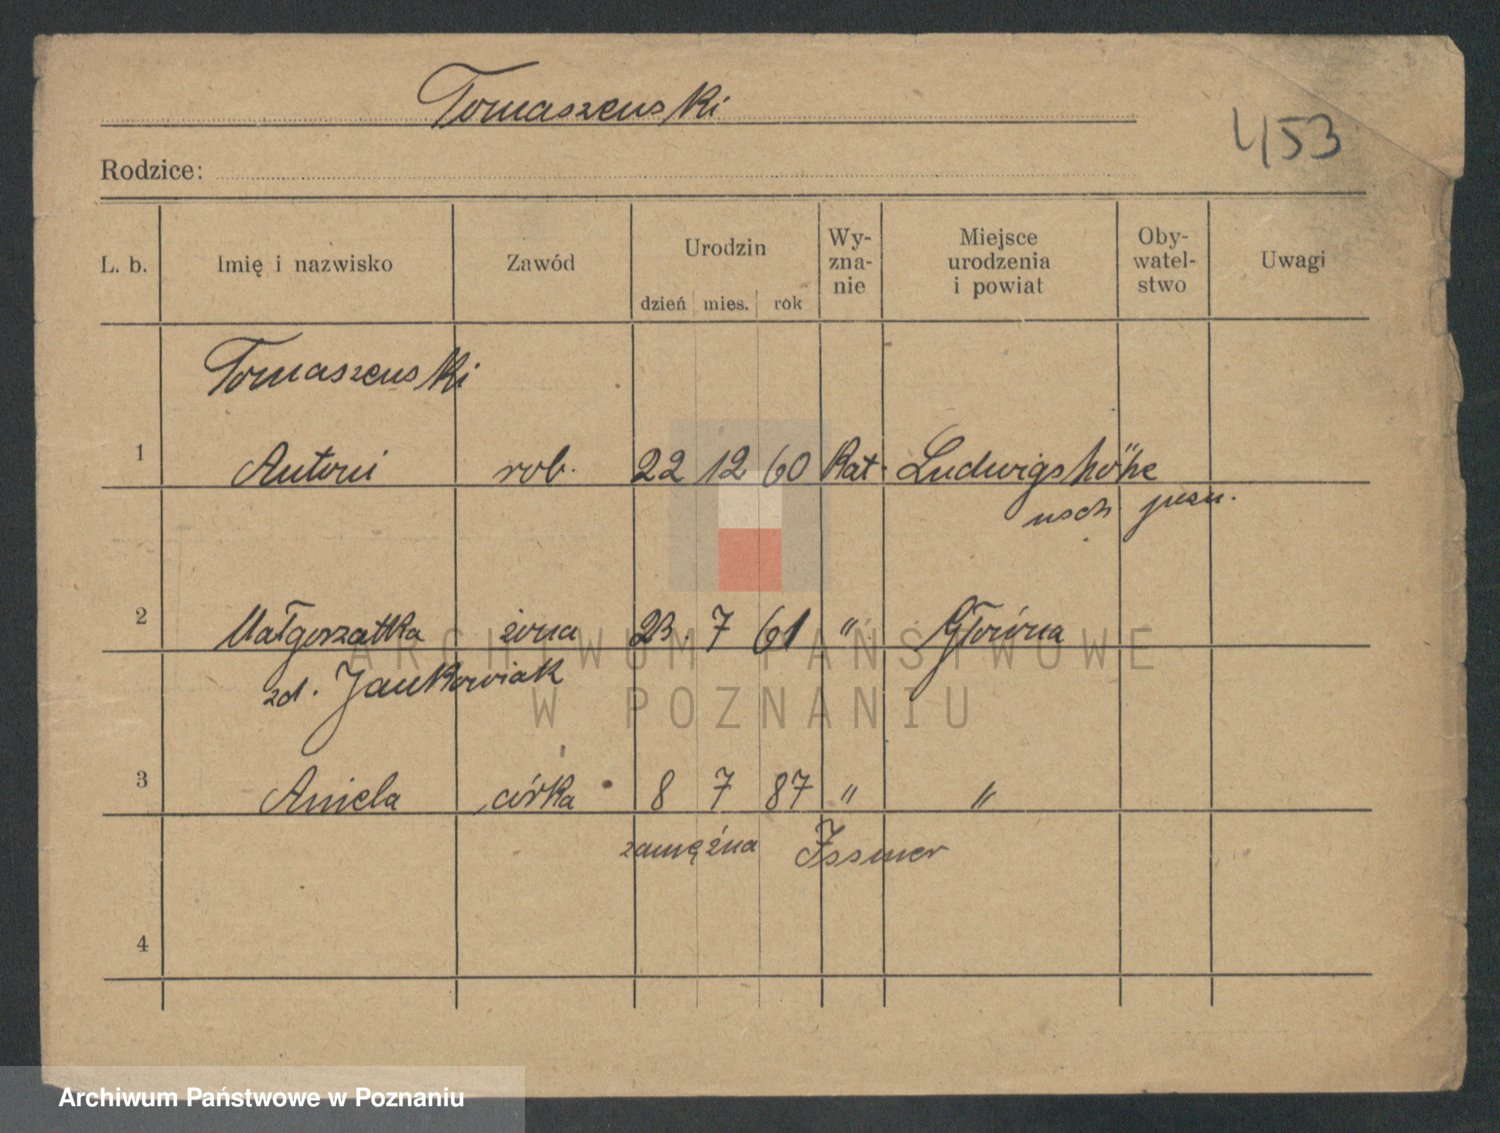 Tomaszewski
453
Rodzice:
L. b. Imię i nazwisko Zawód Urodzin dzień mies. rok Wy-zna-nie Miejsce urodzenia i powiat Oby-watel-stwo Uwagi
Tomaszewski
1 Antoni rob. 22 12 60 Kat. Ludwigshöhe
2 Małgorzatka żona 23. 7 61 " Główna
zd. Jankowiak
3 Aniela córka 8 7 87 " "
zamężna Issmer
4
ARCHIWUM PAŃSTWOWE
W POZNANIU
Archiwum Państwowe w Poznaniu